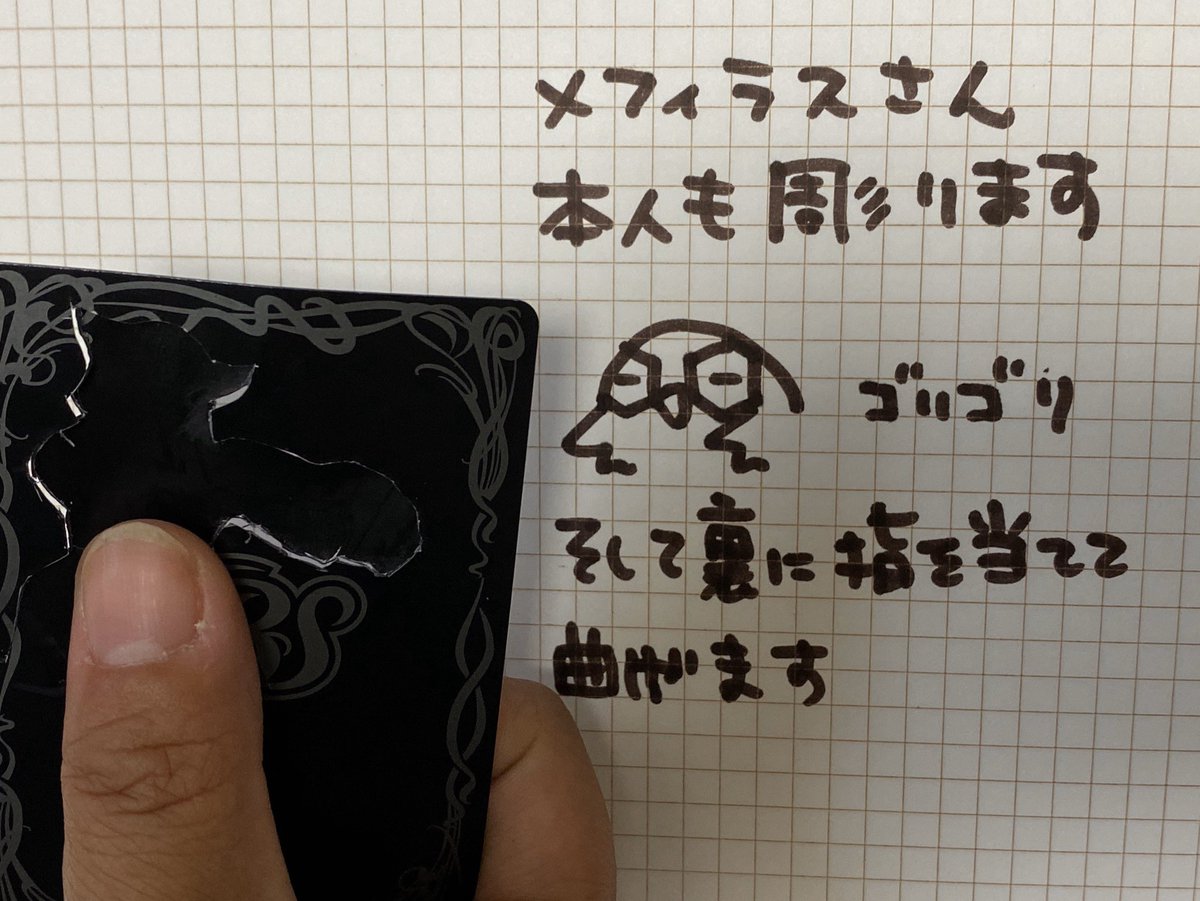 メフィラスさん
本人も彫ります
ゴリゴリ
そして裏に指を当てて
曲げます